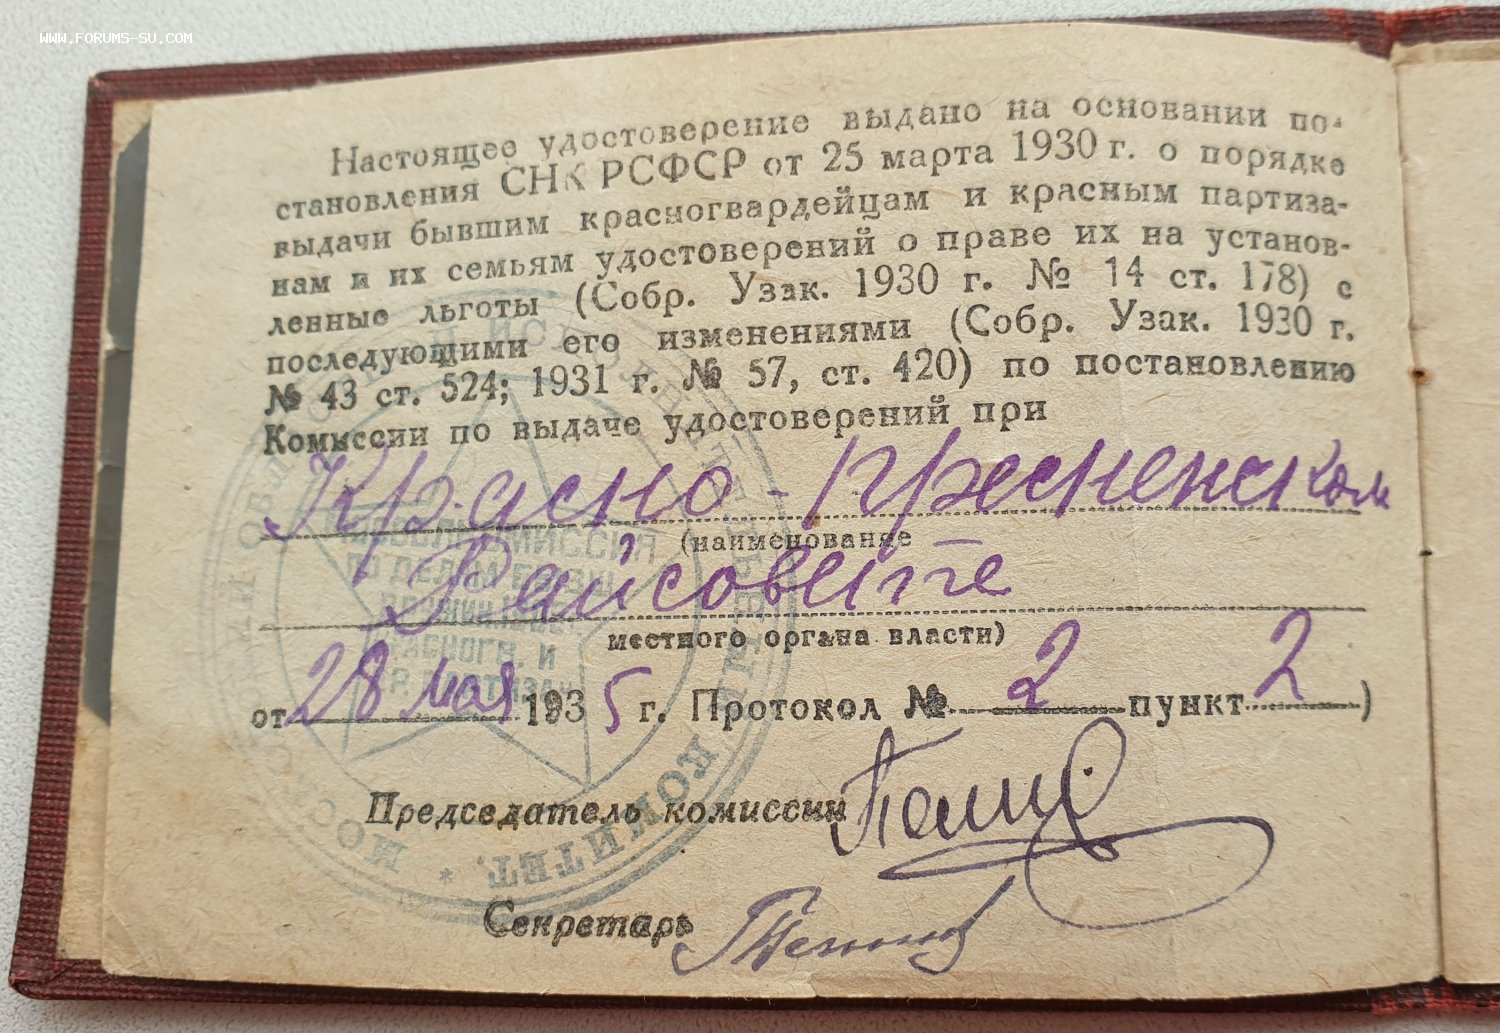 WWW.FORUMS-SU.COM
Настоящее удостоверение выдано на основании по-
становления СНК РСФСР от 25 марта 1930 г. о порядке
выдачи бывшим красногвардейцам и красным партиза-
нам и их семьям удостоверений о праве их на установ-
ленные льготы (Собр. Узак. 1930 г. № 14 ст. 178) с
последующими его изменениями (Собр. Узак. 1930 г.
№ 43 ст. 524; 1931 г. № 57, ст. 420) по постановлению
Комиссии по выдаче удостоверений при
Красно-пресненском
(наименование
Райсовете
местного органа власти)
от 28 мая 1935 г. Протокол № 2 пункт 2)
Председатель комиссии
Секретарь
МОСКОВСКИЙ ОБЛАСТНОЙ ИСПОЛНИТЕЛЬНЫЙ КОМИТЕТ. *
КОМИССИЯ
ПО ДЕЛАМ
КРАСНОГВ. И
КР. ПАРТИЗАН